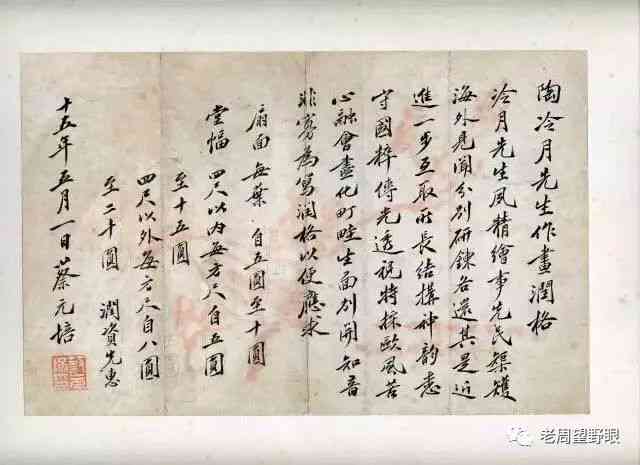 陶冷月先生作畫潤格
冷月先生夙精繪事先民榘矱
海外見聞分別研鍊各還其是近
進一步互取所長結構神韵悉
守國粹傳光透視特採歐風苦
心融會盡化町畦生面別開知音
非寡為寫潤格以便應求
扇面 每葉 自五圓至十圓
堂幅 四尺以內每方尺自五圓
至十五圓
四尺以外每方尺自八圓
至二十圓 潤資先惠
十五年五月一日 蔡元培
老周望野眼